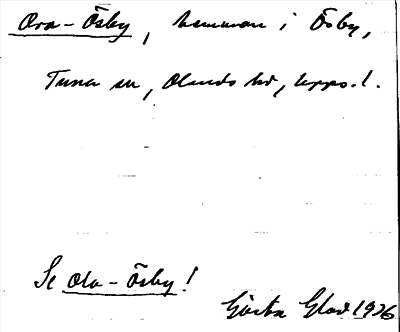 Ora-Ösby, hemman i Ösby,
Tuna sn, Olands hd, Upps. l.
Se Ola-Ösby!
Gösta Glad 1936